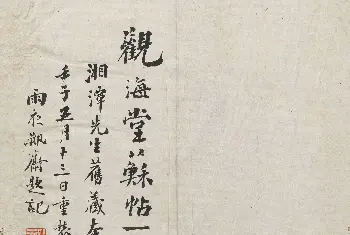 觀海堂蘇帖一
湘潭先生舊藏本
壬子五月十三日重裝
雨夜翫齋題記